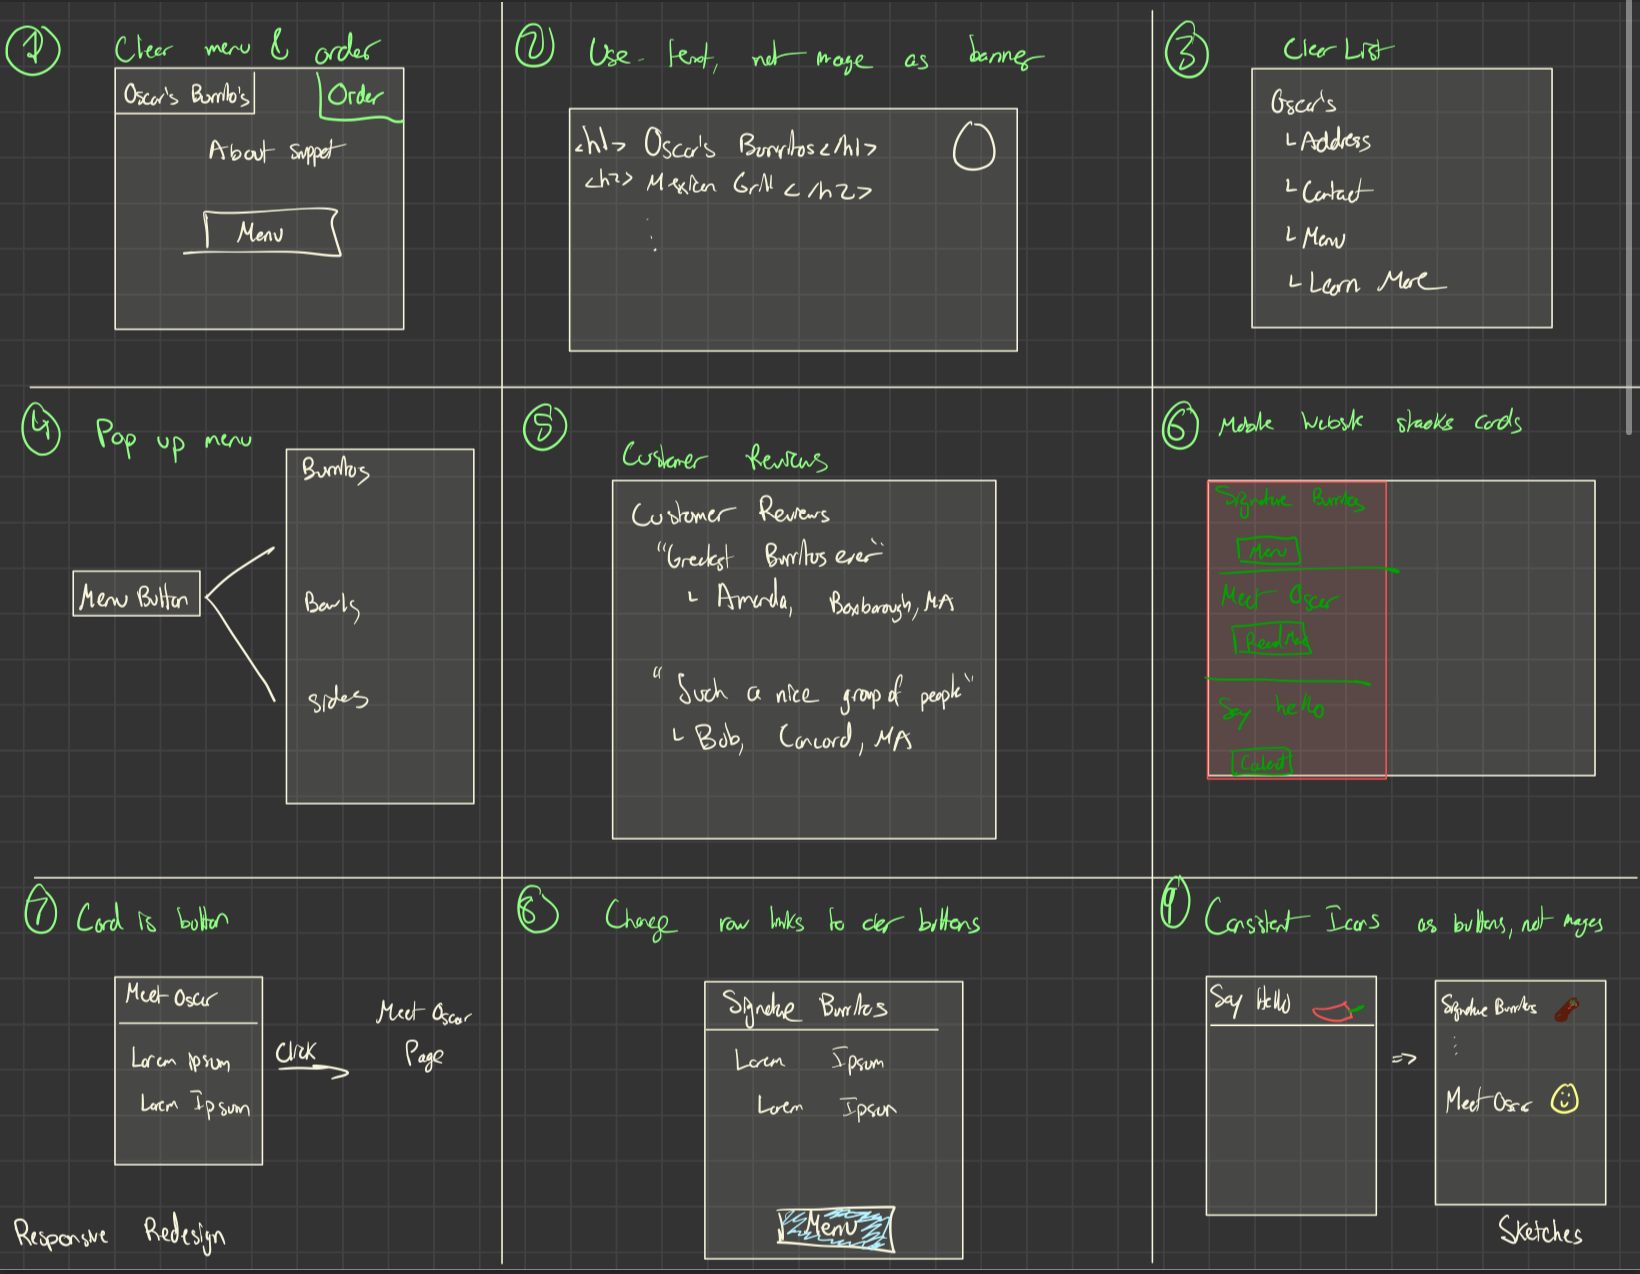 1 Clear menu & order
Oscar's Burrito's
Order
About snippet
Menu
2 Use text, not image as banner
<h1> Oscar's Burritos </h1>
<h2> Mexican Grill </h2>
3 Clear List
Oscar's
Address
Contact
Menu
Learn More
4 Pop up menu
Menu Button
Burritos
Bowls
Sides
5 Customer Reviews
Customer Reviews
"Greatest Burritos ever"
Amanda, Boxborough, MA
"Such a nice group of people"
Bob, Concord, MA
6 Mobile website stacks cards
Signature Burritos
Menu
Meet Oscar
Read More
Say hello
Contact
7 Card is button
Meet Oscar
Lorem ipsum
Lorem Ipsum
Click
Meet Oscar
Page
8 Change raw links to clear buttons
Signature Burritos
Lorem Ipsum
Lorem Ipsum
Menu
9 Consistent Icons as buttons, not images
Say Hello
=>
Signature Burritos
Meet Oscar
Responsive Redesign
Sketches